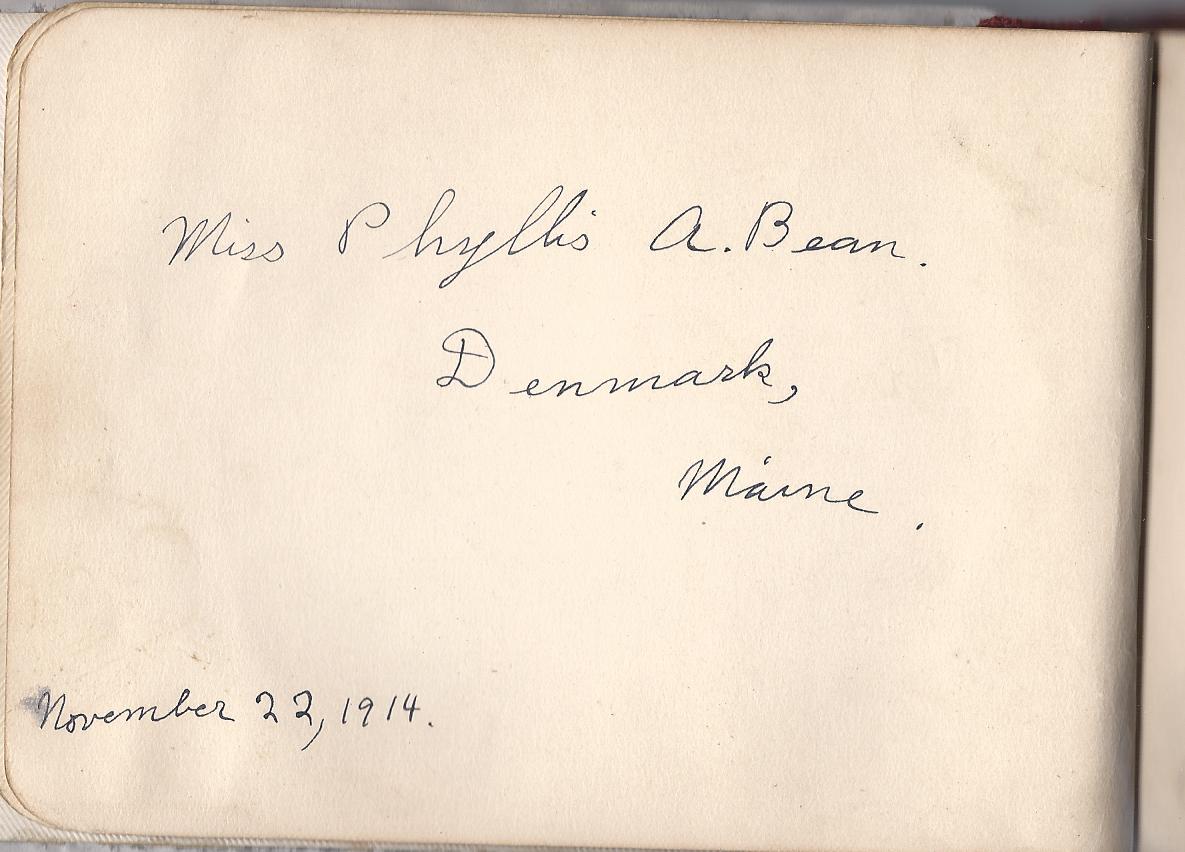 Miss Phyllis A. Bean.
Denmark,
Maine.
November 22, 1914.